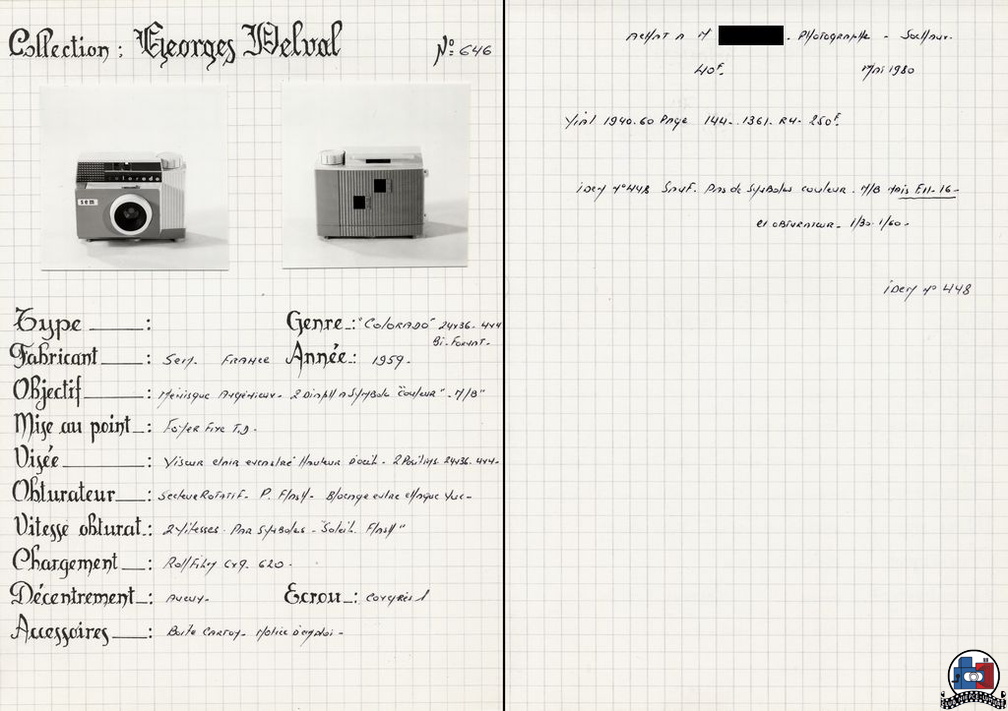 Collection : Georges Delval
N° 646
sem
Type : Genre : "Colorado" 24x36. 4x4
Bi. Format.
Fabricant : Sem. France Année : 1959.
Objectif : Ménisque Angénieux. 2 Diaph à Symbole "couleur". "N/B"
Mise au point : Foyer Fixe
Visée : Viseur clair Hauteur d'oeil. 2 Positions 24x36. 4x4.
Obturateur : Secteur Rotatif. P. Flash. Blocage entre chaque Vue.
Vitesse obturat. : 2 Vitesses. Par Symboles. "Soleil. Flash"
Chargement : Roll Film 6x9. 620.
Décentrement : Aucun. Ecrou : Congrès
Accessoires : Boite Carton. Notice d'emploi.
Achat à M . Photographe - Sochaux.
40F. Mai 1980
Vial 1940.60 Page 144. 1361. R4. 250F.
idem n° 448 Sauf. Pas de Symboles couleur. N/B mais F11-16-
et obturateur. 1/30. 1/60.
idem n° 448